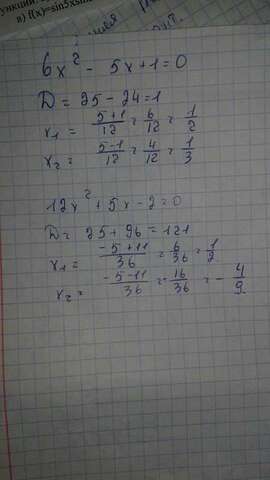 в) f(x)=sin5xsin
6x² - 5x+1=0
D = 25 - 24 = 1
x₁ = 5+1/12 = 6/12 = 1/2
x₂ = 5-1/12 = 4/12 = 1/3
12x² + 5x - 2 = 0
D = 25 + 96 = 121
x₁ = -5+11/36 = 6/36 = 1/2
x₂ = -5-11/36 = -16/36 = -4/9